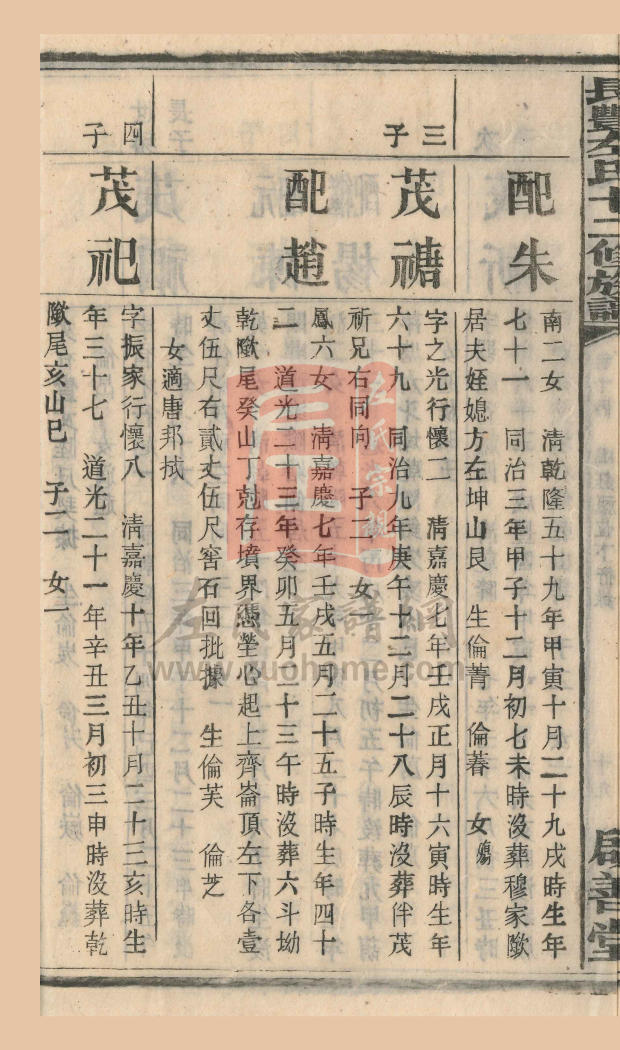 長豐左氏十二修族譜
啟善堂
配朱
南二女 清乾隆五十九年甲寅十月二十九戌時生年
七十一 同治三年甲子十二月初七未時沒葬穆家
居夫姪媳方左坤山艮 生倫菁 倫萶 女殤
三子
茂禟
字之光行懷二 清嘉慶七年壬戌正月十六寅時生年
六十九 同治九年庚午十二月二十八辰時沒葬伴茂
祈兄右同向 子二 女一
配趙
鳳六女 清嘉慶七年壬戌五月二十五子時生年四十
二 道光二十三年癸卯五月二十三午時沒葬六斗坳
乾 尾癸山丁 存墳界憑塋心起上齊崙頂左下各壹
丈伍尺右貳丈伍尺窖石回批據一 生倫芙 倫芝
女適唐邦拭
四子
茂祀
字振家行懷八 清嘉慶十年乙丑十月二十三亥時生
年三十七 道光二十一年辛丑三月初三申時沒葬乾
尾亥山巳 子二 女一
左氏家譜網
www.zuohome.com